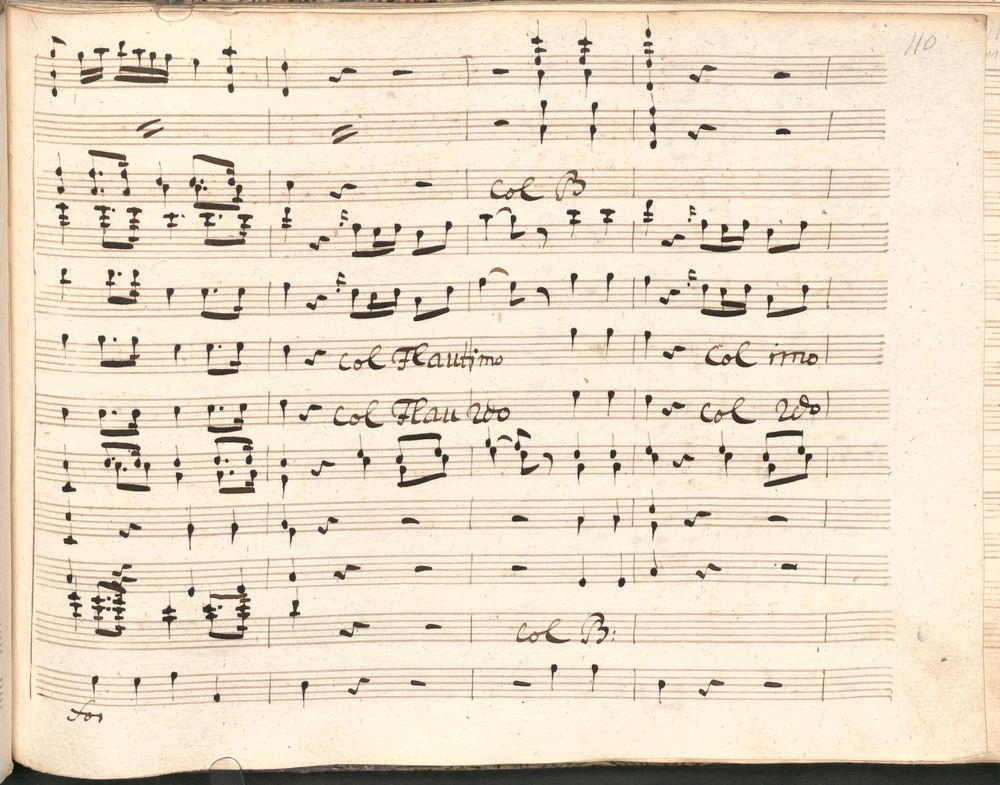 110
col B
col Flautimo
col imo
col Flau 2do
col 2do
col B:
for